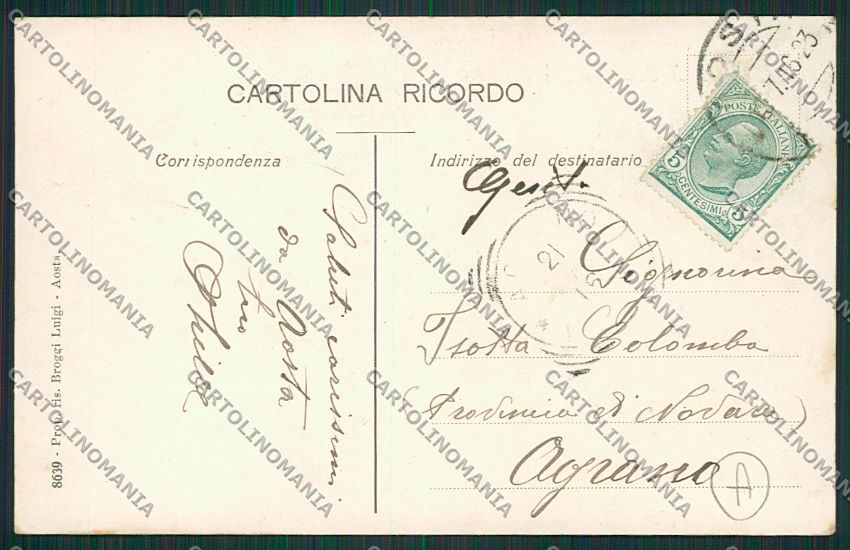 CARTOLINA RICORDO
Corrispondenza
Indirizzo del destinatario
POSTE ITALIANE
CENTESIMI
5
5
Saluti carissimi
da Aosta
Gent.
Signorina
Isotta Colombo
(Provincia di Novara)
Agrano
A
21
12
8639 - Propr. ris. Broggi Luigi - Aosta
CARTOLINOMANIA